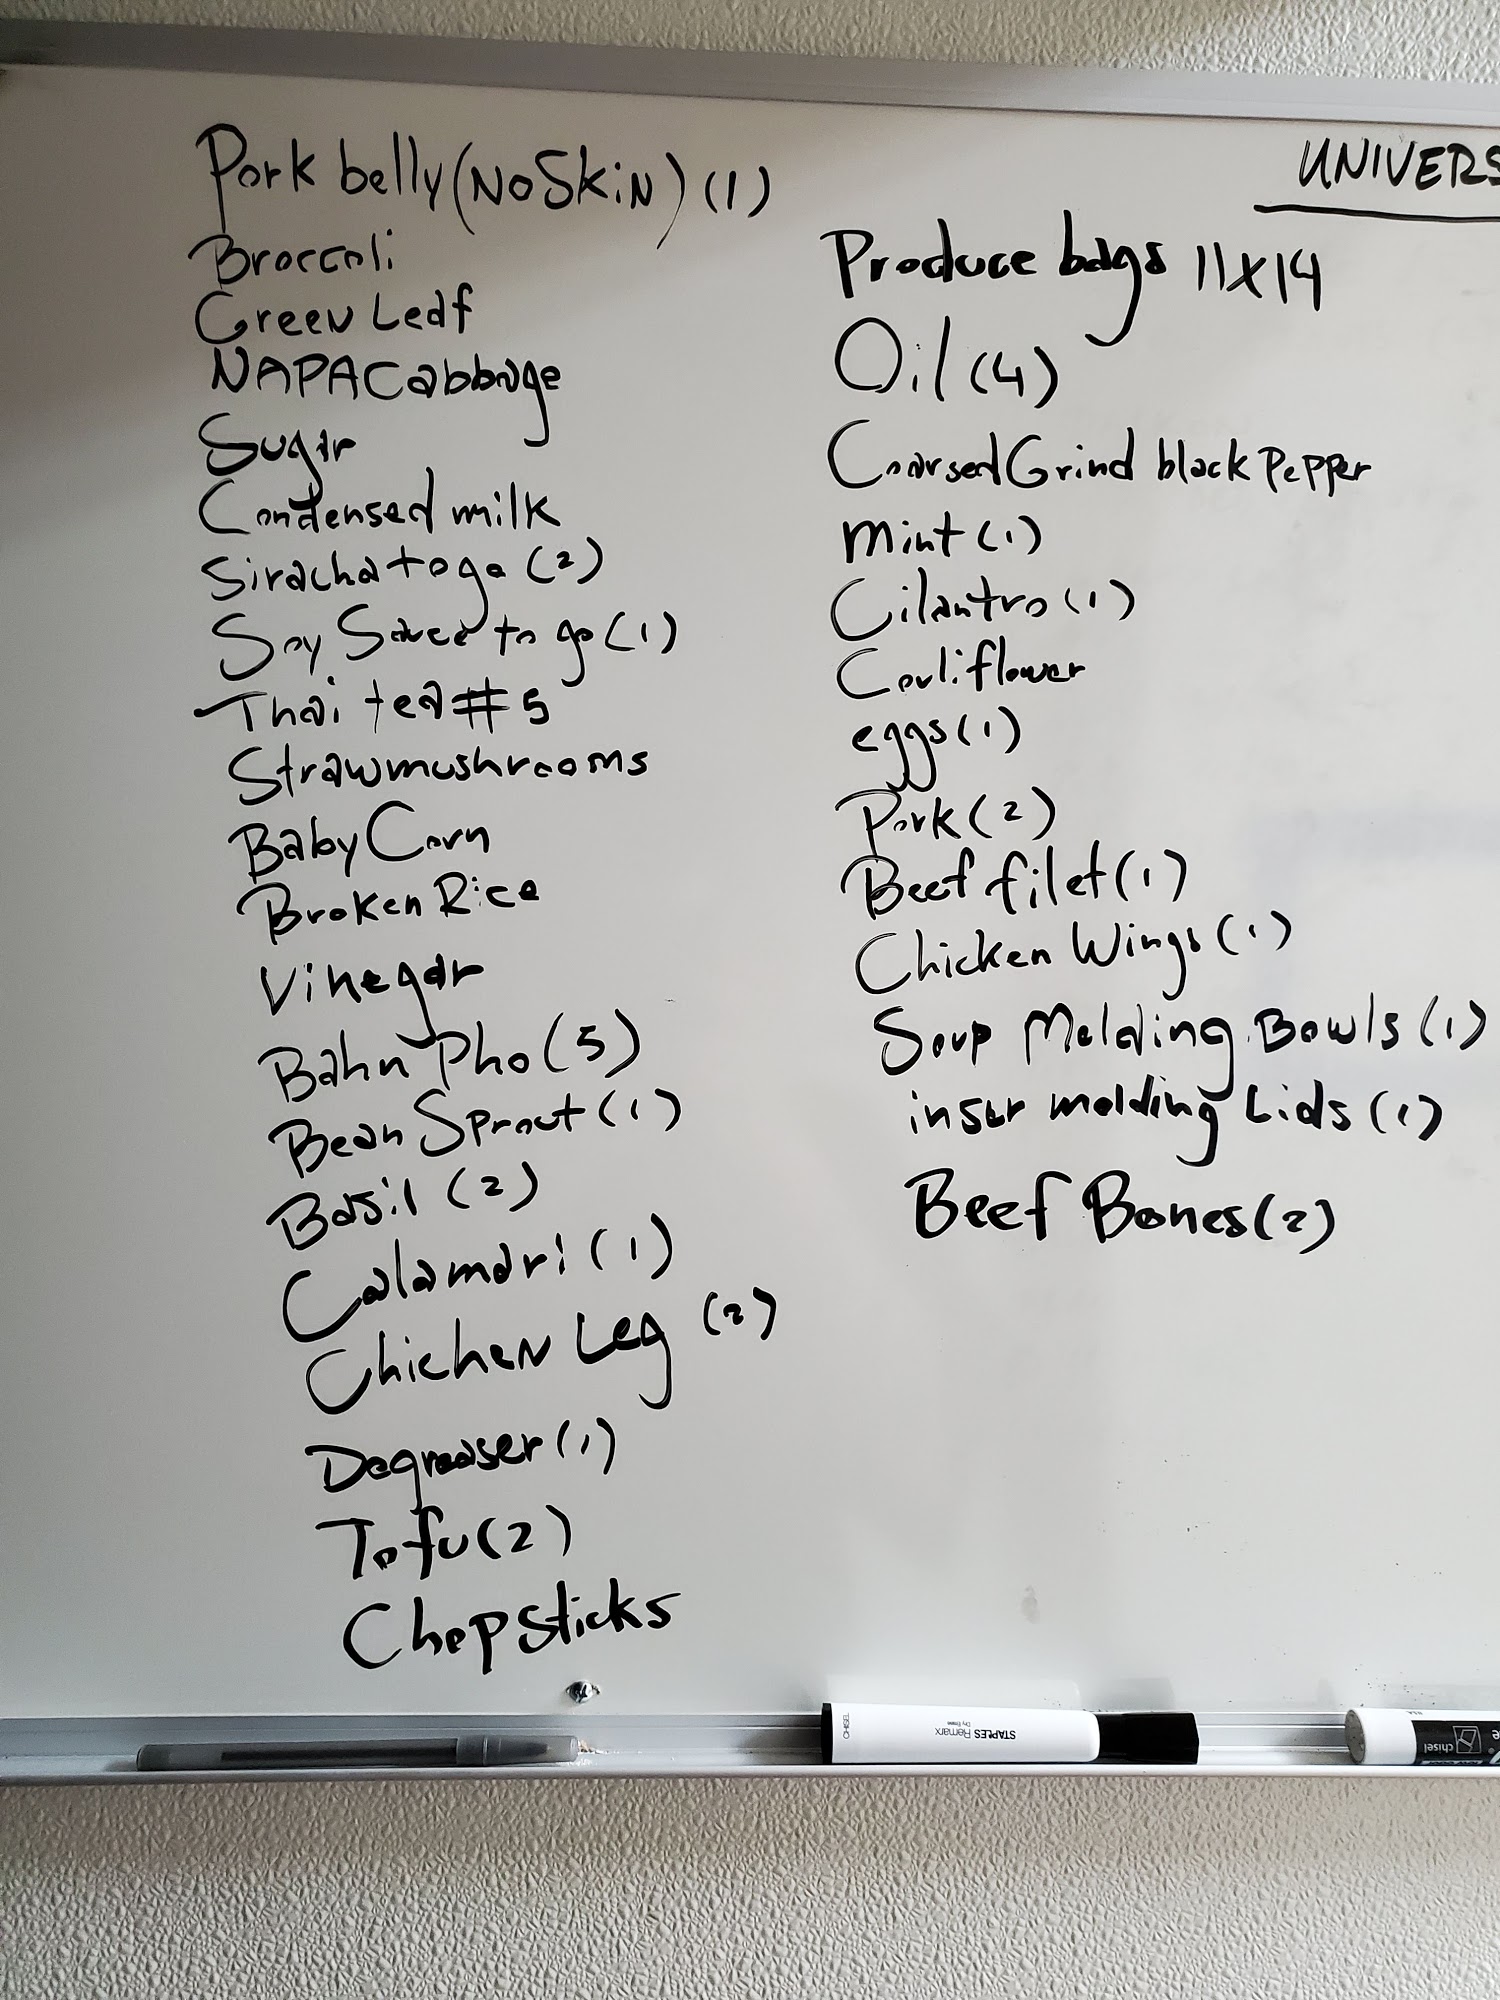 Pork belly (NO SKIN) (1)
Broccoli
Green Leaf
NAPA Cabbage
Sugar
Condensed milk
Siracha to go (2)
Soy Sauce to go (1)
Thai tea #5
Straw mushrooms
Baby Corn
Broken Rice
Vinegar
Bahn Pho (5)
Bean Sprout (1)
Basil (2)
Calamari (1)
Chicken Leg (2)
Degreaser (1)
Tofu (2)
Chopsticks
UNIVERS
Produce bags 11x14
Oil (4)
Coarsed Grind black Pepper
mint (1)
Cilantro (1)
Cauliflower
eggs (1)
Pork (2)
Beef filet (1)
Chicken Wings (1)
Soup Molding Bowls (1)
inser molding Lids (1)
Beef Bones (2)
CHISEL
STAPLES Remarx
Dry Erase
chisel